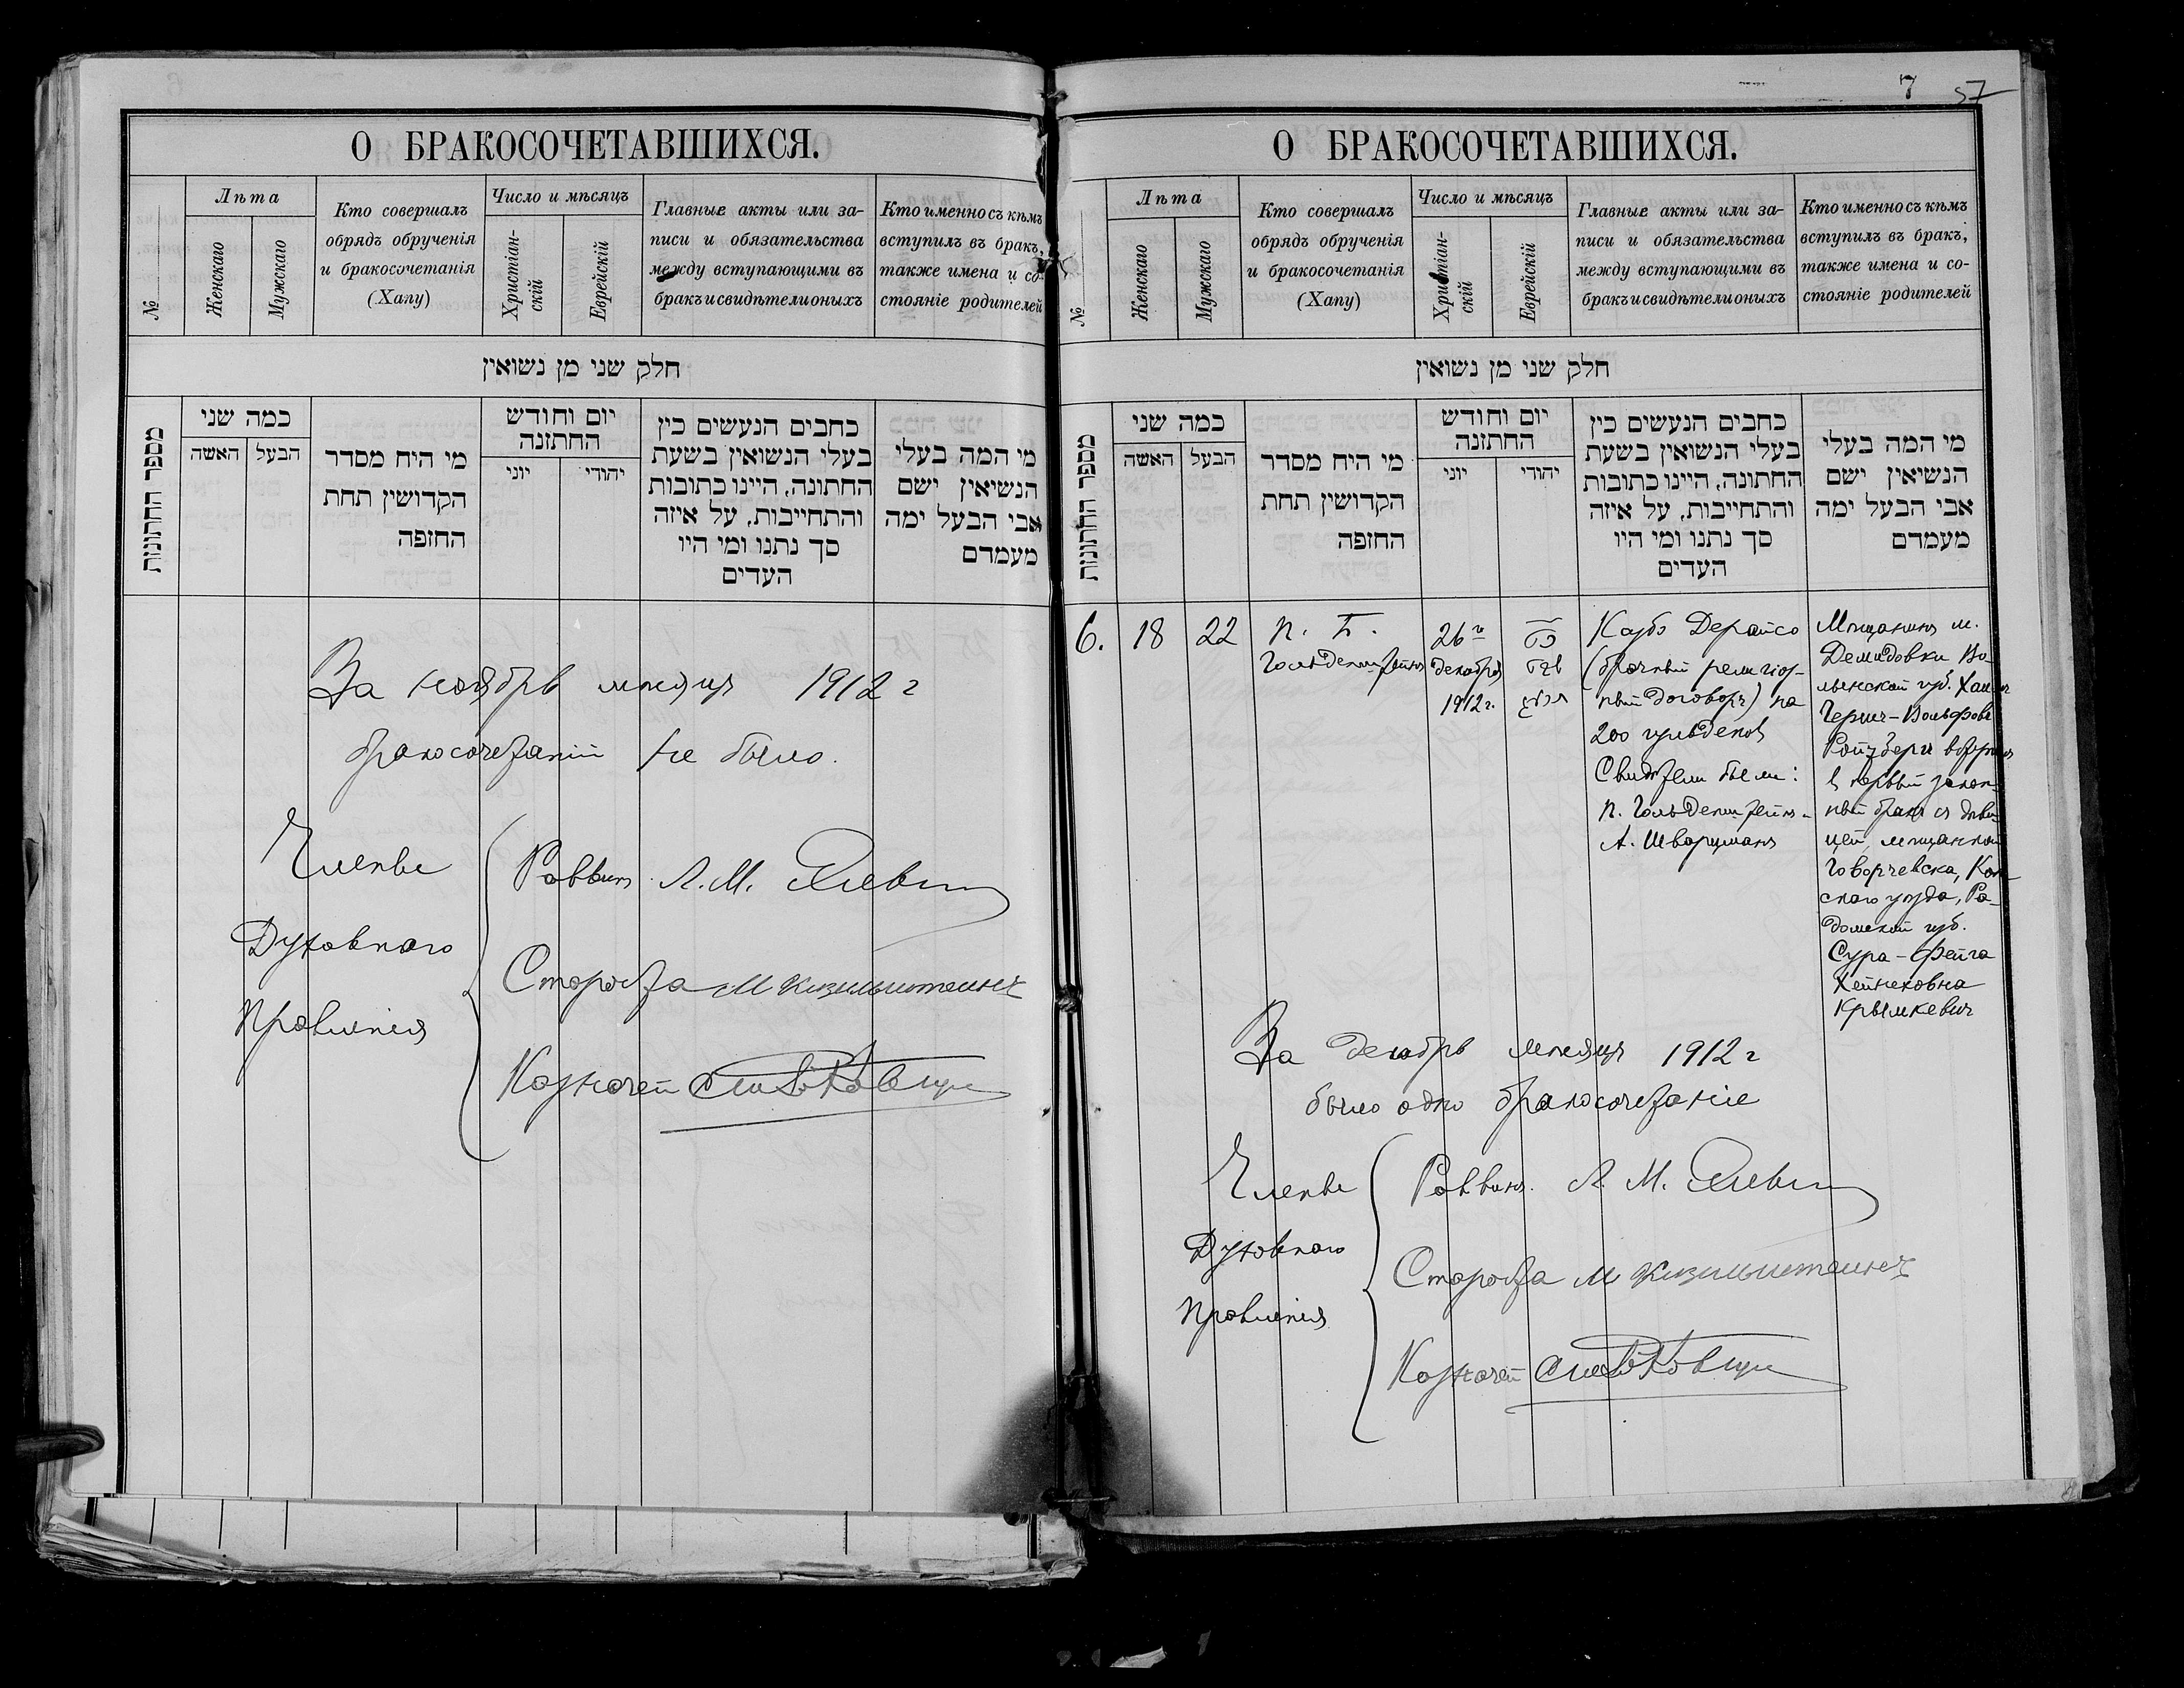 О БРАКОСОЧЕТАВШИХСЯ.
№
Лѣта
Женскаго
Мужскаго
Кто совершалъ
обрядъ обрученія
и бракосочетанія
(Хапу)
Число и мѣсяцъ
Христіан-
скій
Еврейскій
Главные акты или за-
писи и обязательства
между вступающими въ
бракъ и свидѣтели оныхъ
Кто именно съ кѣмъ
вступилъ въ бракъ,
также имена и со-
стояніе родителей
חלק שני מן נשואין
מספר החתונות
כמה שני
האשה
הבעל
מי היח מסדר
הקדושין תחת
החזפה
יום וחודש
החתזנה
יוני
יהודי
כחבים הנעשים כין
בעלי הנשואין בשעת
החתונה, היינו כתובות
והתחייבות, על איזה
סך נתנו ומי היו
העדים
מי המה בעלי
הנשיאין ישם
אבי הבעל ימה
מעמדם
За ноябрь мѣсяцъ 1912 г
бракосочетаній не было.
Члены
Духовнаго
Правленія
Раввинъ Л. М.
Староста М
Казначей
7 57
О БРАКОСОЧЕТАВШИХСЯ.
№
Лѣта
Женскаго
Мужскаго
Кто совершалъ
обрядъ обрученія
и бракосочетанія
(Хапу)
Число и мѣсяцъ
Христіан-
скій
Еврейскій
Главные акты или за-
писи и обязательства
между вступающими въ
бракъ и свидѣтели оныхъ
Кто именно съ кѣмъ
вступилъ въ бракъ,
также имена и со-
стояніе родителей
חלק שני מן נשואין
מספר החתונות
כמה שני
האשה
הבעל
מי היח מסדר
הקדושין תחת
החזפה
יום וחודש
החתזנה
יוני
יהודי
כחבים הנעשים כין
בעלי הנשואין בשעת
החתונה, היינו כתובות
והתחייבות, על איזה
סך נתנו ומי היו
העדים
מי המה בעלי
הנשיאין ישם
אבי הבעל ימה
מעמדם
6.
18
22
П. Б.
Гольденштейнъ
26го
декабря
1912 г.
טבת
Касубо Дерайсо
(брачный религіоз-
ный договоръ) на
200 гульденовъ
Свидѣтели были:
П. Гольденштейнъ
А. Шварцманъ
Мѣщанинъ м.
Демидовки Во-
лынской губ. Хаимъ
Герш-Вольфовъ
Ройзбергъ вступилъ
въ первый закон-
ный бракъ съ дѣви-
цей, мѣщанкой
Говорчевска, Кон-
скаго уѣзда, Ра-
домской губ.
Сура-Фейга
Хейнеховна
Крымкевич
За декабрь мѣсяцъ 1912 г
было одно бракосочетаніе
Члены
Духовнаго
Правленія
Раввинъ Л. М.
Староста М
Казначей